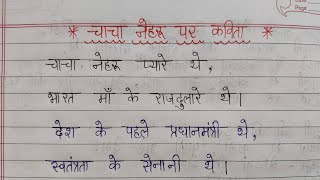 * चाचा नेहरू पर कविता *
चाचा नेहरू प्यारे थे,
भारत माँ के राजदुलारे थे।
देश के पहले प्रधानमंत्री थे,
स्वतंत्रता के सेनानी थे।